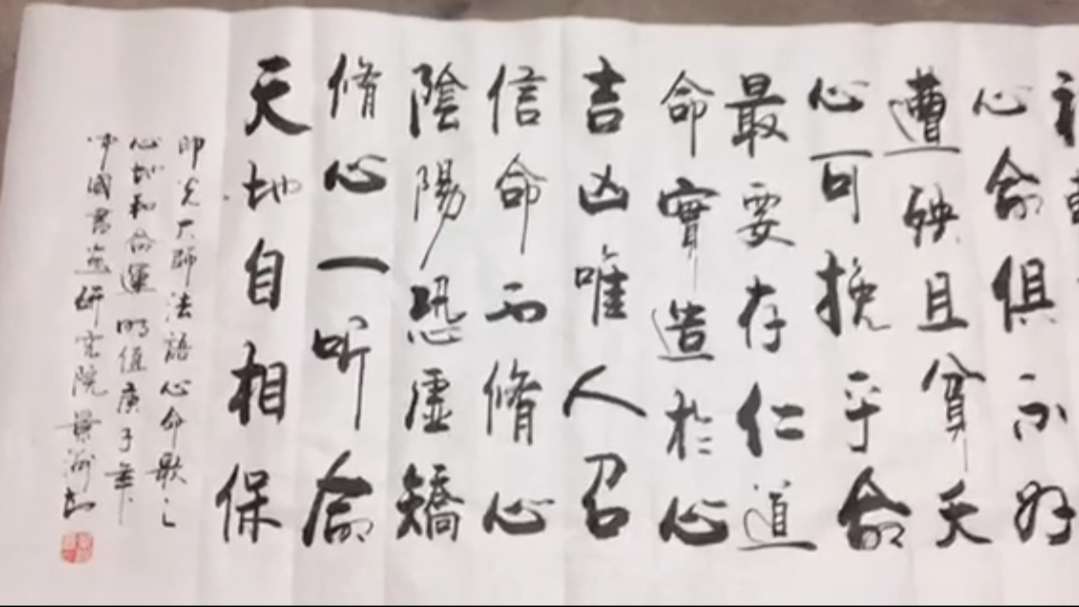 心命俱不好
遭殃且貧夭
心可挽乎命
最要存仁道
命實造於心
吉凶唯人召
信命不脩心
陰陽恐虛矯
脩心一听命
天地自相保
印光大师法語心命歌之
心地和命運時值庚子年
中國書画研究院